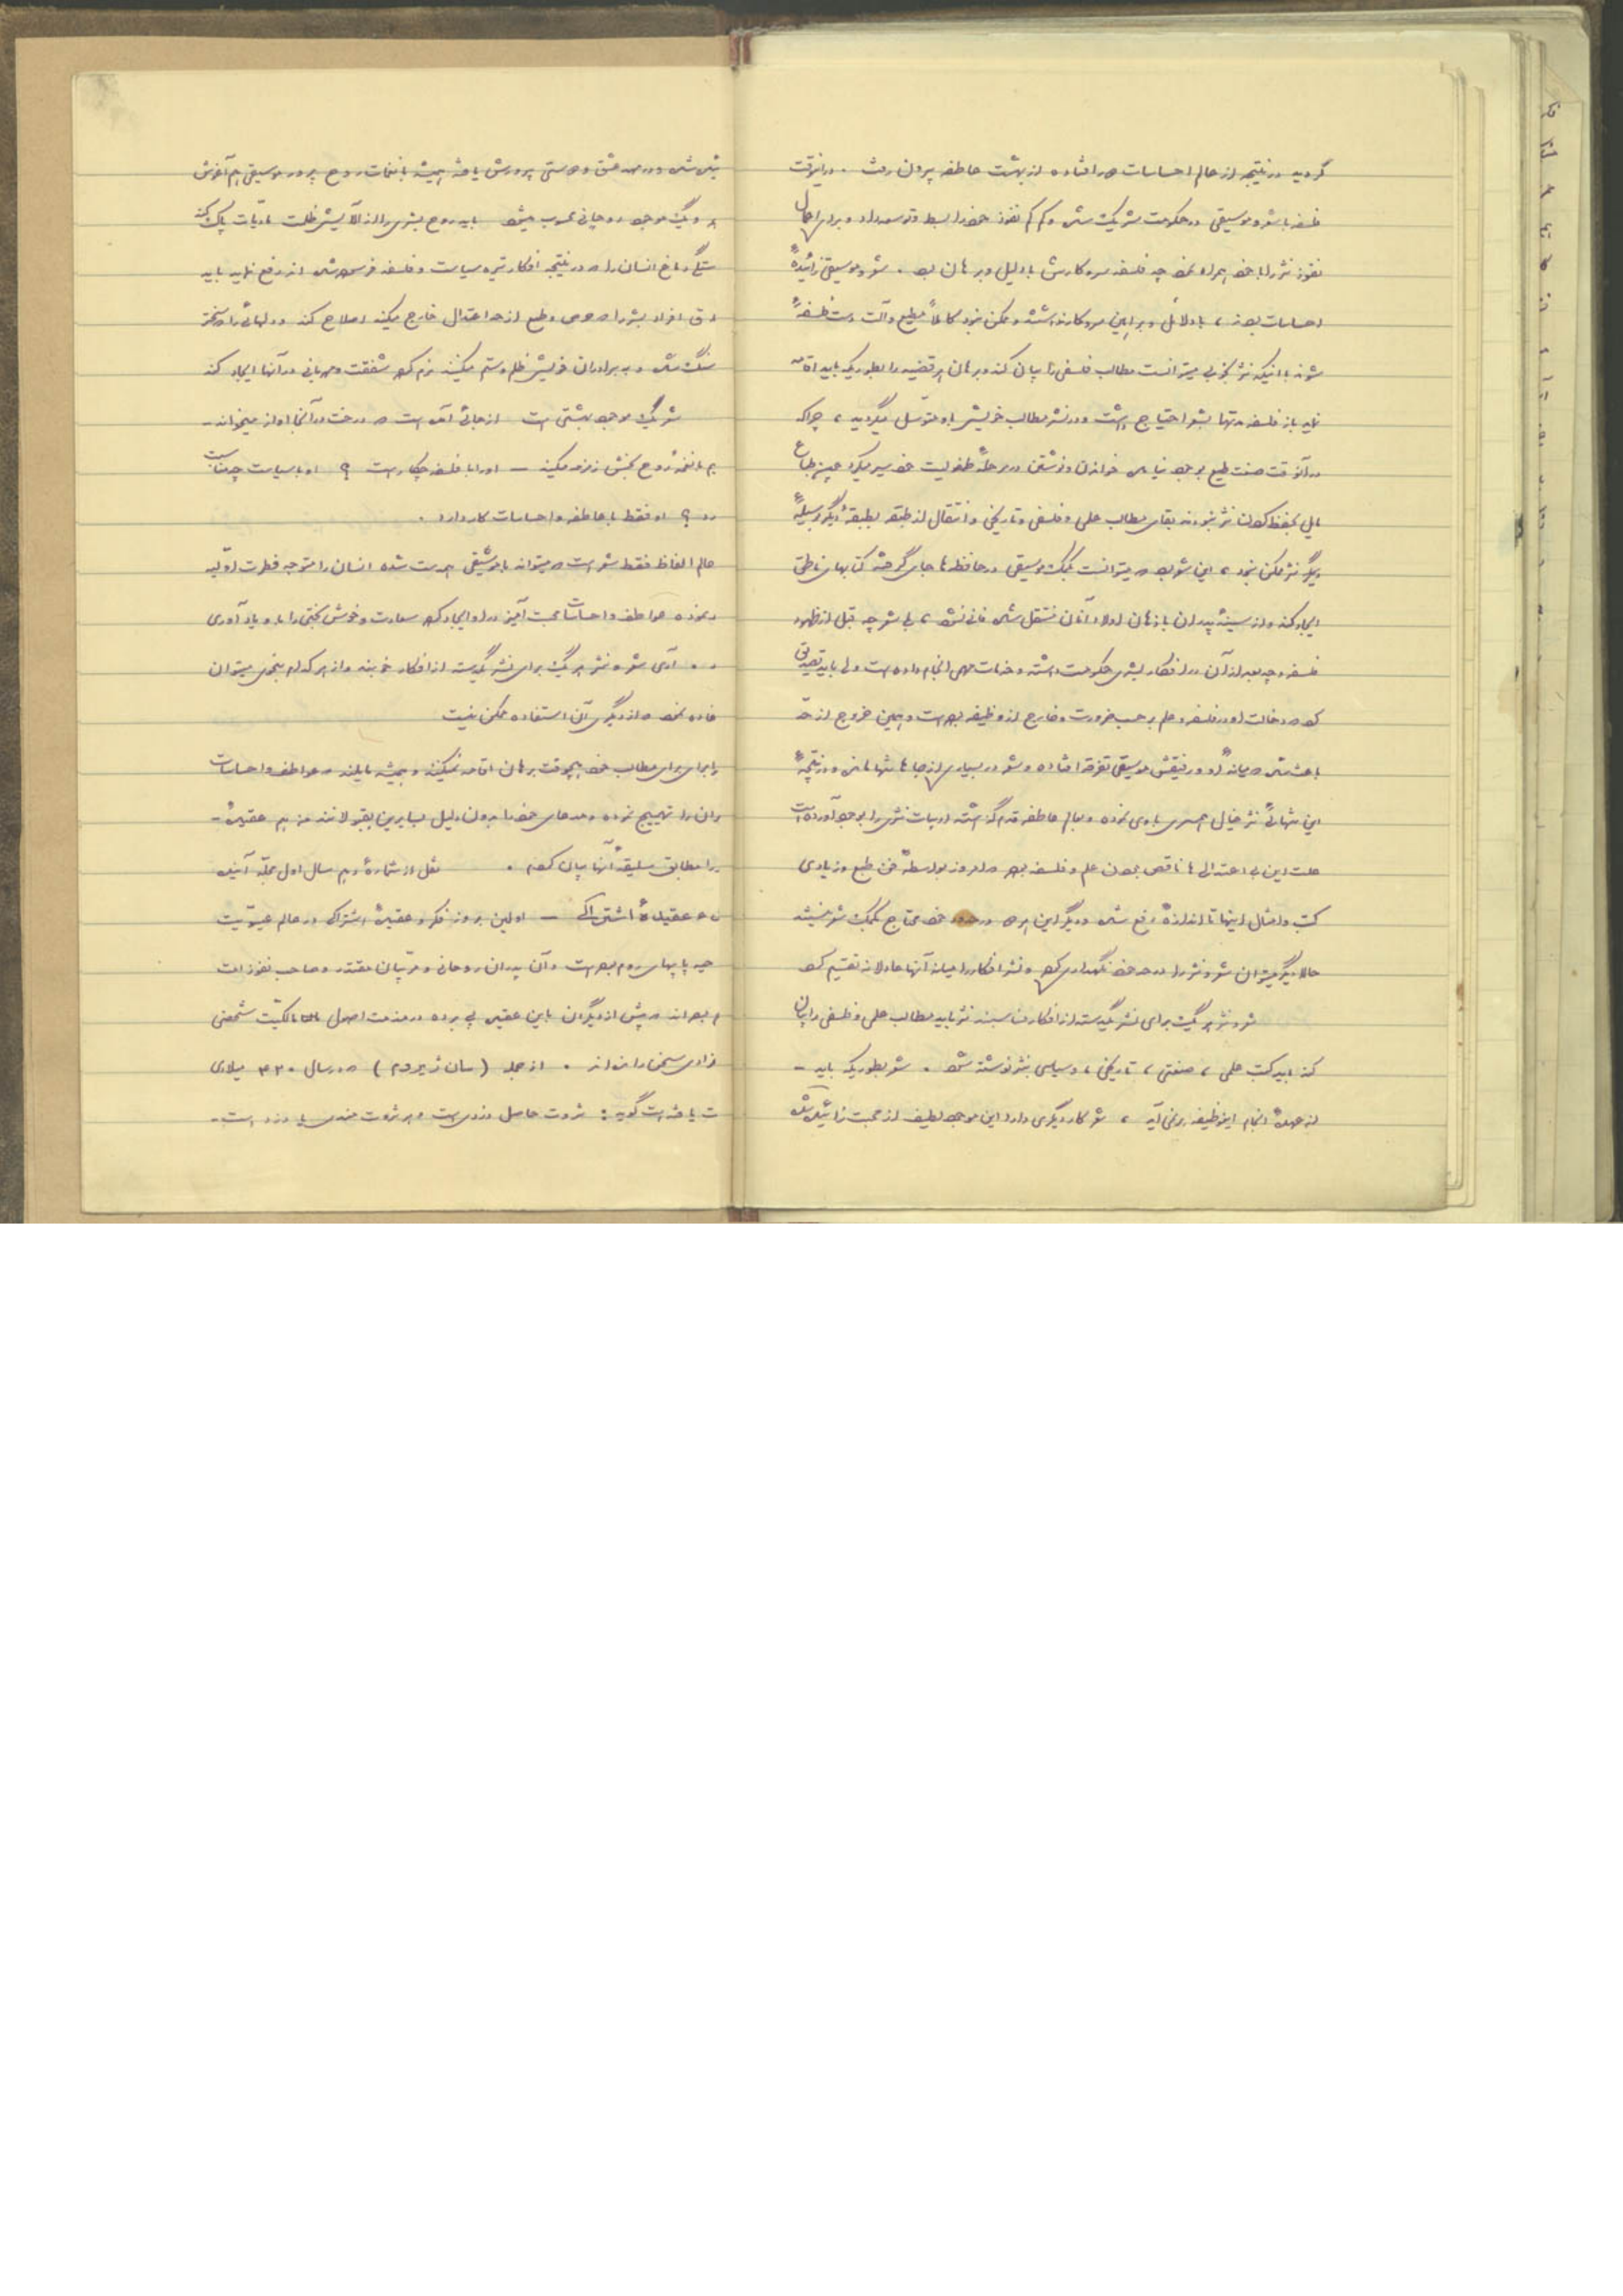 گردید در نتیجه از عالم احساسات دور افتاده از بهشت عاطفه بیرون رفت . در اینوقت
فلسفه با شعر و موسیقی در حکومت شریک شد و کم کم نفوذ خود را بسط و توسعه داد و برای اعمال
نفوذ نثر را با خود همراه نمود چه فلسفه سر و کارش با دلیل و برهان بود . شعر و موسیقی زائیدهٔ
احساسات بودند ، با دلائل و براهین سر و کار نداشتند و ممکن نبود کاملاً مطیع و آلت دست فلسفه
شوند با اینکه نثر بخوبی میتوانست مطالب فلسفی را بیان کند و برهان هر قضیه را بطوریکه باید اقامه
نماید باز فلسفه مدتها بشعر احتیاج داشت و در نشر مطالب خویش باو متوسل میگردید ، چرا که
در آنوقت صنعت طبع بوجود نیامده خواندن و نوشتن در مرحلهٔ طفولیت خود سیر میکرد
بحفظ کردن نثر نبودند بقای مطالب علمی و فلسفی و تاریخی و انتقال از طبقه بطبقهٔ دیگر بوسیلهٔ
نثر ممکن نبود ، این شعر بود که میتوانست بکمک موسیقی در حافظه‌ها جای گرفته کتابهای ناطق
ایجاد کند و از سینهٔ پدران باذهان اولاد آنان منتقل شده فانی نشود ، بلی شعر چه قبل از ظهور
فلسفه و چه بعد از آن در افکار بشری حکومت داشته و خدمات مهمی انجام داده است ولی باید تصدیق
کرد که دخالت او در فلسفه و علم بر حسب ضرورت و خارج از وظیفه بوده است و همین خروج از حد
باعث شد که میان او و رفیقش موسیقی تفرقه افتاده و شعر در بسیاری از جاها تنها مانده و در نتیجهٔ
این تنهائی نثر خیال همسری با وی نموده و بعالم عاطفه قدم گذاشته ادبیات نثری را بوجود آورده است
علت این بی اعتدالی‌ها ناقص بودن علم و فلسفه بود که امروز بواسطهٔ فن طبع و زیادی
کتب و امثال اینها تا اندازهٔ رفع شده و دیگر این در حدود خود محتاج بکمک شعر نیستند
حالا دیگر میتوان شعر و نثر را در حد خود نگهداری کرد و نشر افکار را میانه آنها عادلانه تقسیم کرد
شعر و نثر هر یک برای نشر یکدسته از افکار مناسبند نثر باید مطالب علمی و فلسفی را بیان
کند باید کتب علمی ، صنعتی ، تاریخی ، و سیاسی بنثر نوشته شود . شعر بطوریکه باید -
از عهدهٔ انجام این وظیفه بر نمی‌آید ، شعر کار دیگری دارد این موجود لطیف از محبت زائیده شده
شده و در مهد عشق و دوستی پرورش یافته همیشه با نغمات روح پرور موسیقی هم آغوش
و یک موجود روحانی محسوب میشود باید روح بشری را از آلایش ظلمت مادیات پاک کند
دماغ انسان را که در نتیجه افکار تیره سیاست و فلسفه فرسوده شده رفع نماید باید
افراد بشر را که حرص و طمع از حد اعتدال خارج میکند اصلاح کند و دلهائی را که سخت‌تر
سنگ شده و به برادران خویش ظلم و ستم میکنند نرم کرده شفقت و مهربانی در آنها ایجاد کند
شعر یک موجود بهشتی است از جائی آمده است که درخت در آنجا آواز میخواند -
با نغمهٔ روح بخش زمزمه میکند - او را با فلسفه چکار است ؟ او با سیاست چه مناسبت
؟ او فقط با عاطفه و احساسات کار دارد .
عالم الفاظ فقط شعر است که میتواند با موسیقی همدست شده انسان را متوجه فطرت اولیه
نموده عواطف و احساسات محبت آمیز در او ایجاد کرده سعادت و خوش بختی را باو یادآوری
آری شعر و نثر هر یک برای نشر یکدسته از افکار خوبند و از هر کدام بنحوی میتوان
نمود که از دیگری آن استفاده ممکن نیست
برای مطالب خود هیچوقت برهان اقامه نمیکنند و همیشه مایلند که عواطف و احساسات
را تهییج نموده و مدعای خود را بدون دلیل بسایرین بقبولانند من هم عقیده -
را مطابق سلیقهٔ آنها بیان کردم . نقل از شمارهٔ دهم سال اول مجله آینده
عقیدهٔ اشتراکی - اولین بروز فکر و عقیدهٔ اشتراکی در عالم عیسویت
پاپهای روم بوده است و آن پدران روحانی و مربیان مقتدر و صاحب نفوذ امت
بوده‌اند که پیش از دیگران باین عقیده پی برده در مذمت اصول مالکیت شخصی
سخن رانده‌اند . از جمله (سان ژیروم) که در سال ۴۲۰ میلادی
یافته است گوید : ثروت حاصل دزدی است و هر ثروت مندی یا دزد است -